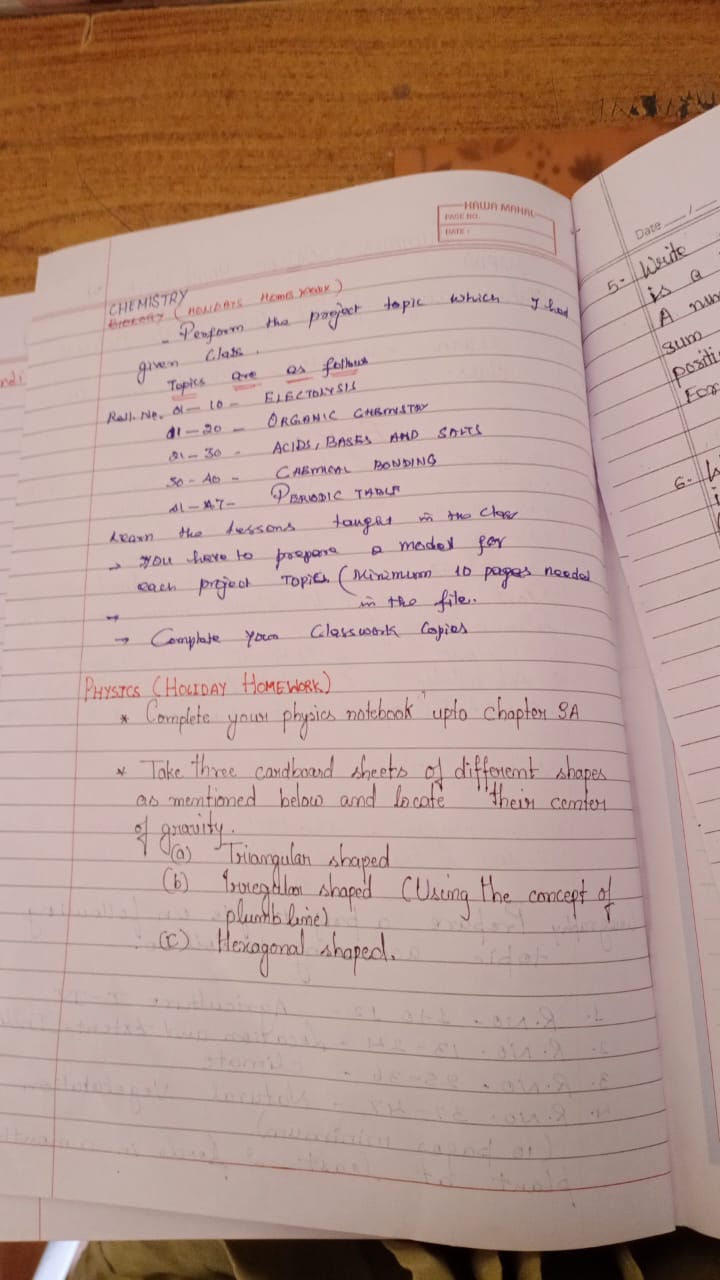 HAWA MAHAL
PAGE NO.
DATE :
CHEMISTRY
BIOLOGY (HOLIDAYS HOME WORK)
- Perform the project topic which I had
given class.
Topics are as follows
Roll. No. 01- 10 - ELECTOLYSIS
11-20 - ORGANIC CHEMISTRY
21-30 - ACIDS, BASES AND SALTS
30-40 - CHEMICAL BONDING
41-47- PERIODIC TABLE
Learn the lessons taught in the class
→ You have to prepare a model for
each project Topics (Minimum 10 pages needed
in the file.
→
→ Complete your Classwork Copies
PHYSICS (HOLIDAY HOMEWORK)
* Complete your physics notebook upto chapter 3A
* Take three cardboard sheets of different shapes
as mentioned below and locate their center
of gravity.
(a) Triangular shaped
(b) Irregular shaped (Using the concept of
plumb line)
(c) Hexagonal shaped.
Date __/__
5- Write
is a
A num
sum
positi
For
6- W